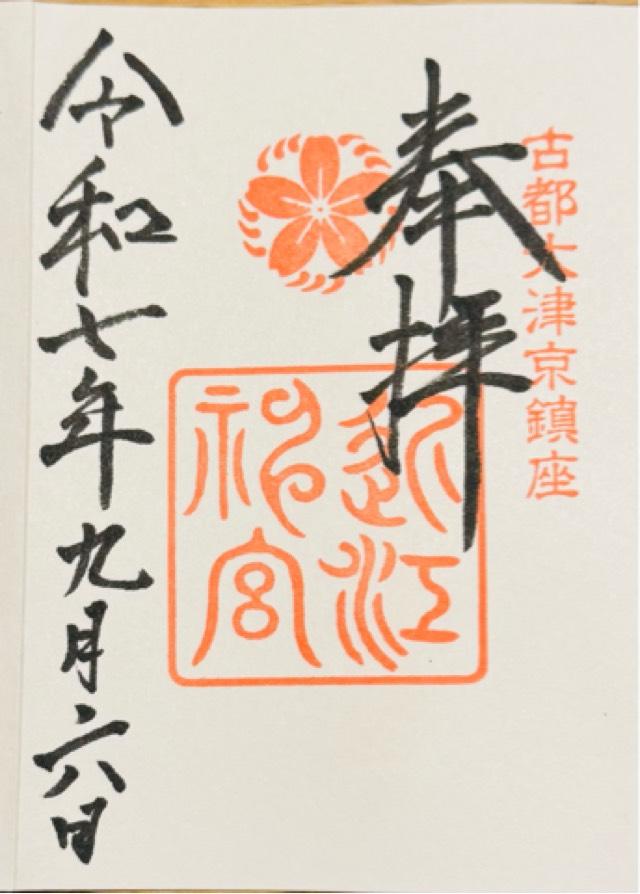 古都大津京鎮座
奉拝
近江
神宮
令和七年九月六日